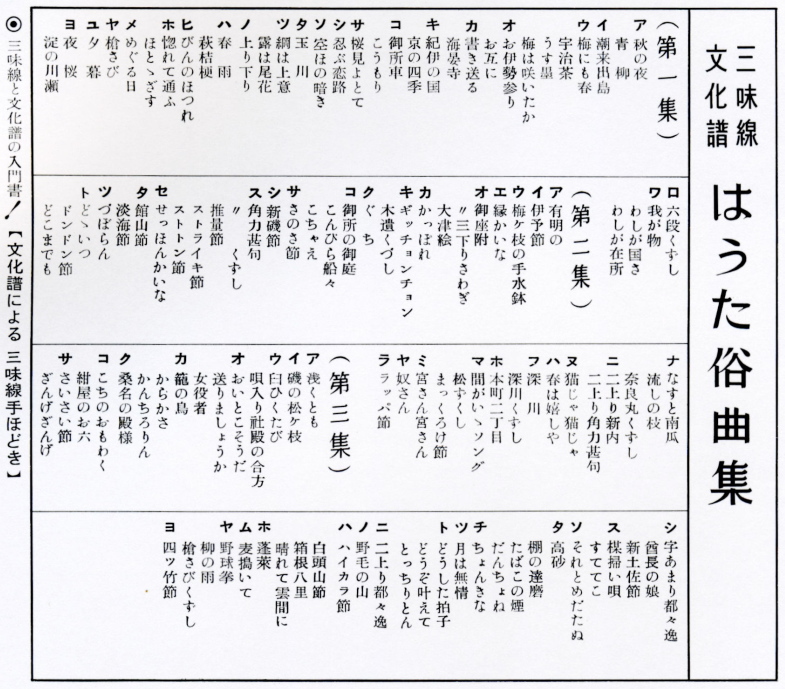 三味線
文化譜
はうた俗曲集
（第一集）
ア 秋の夜
青柳
イ 潮来出島
ウ 梅にも春
宇治茶
うす墨
梅は咲いたか
オ お伊勢参り
お互に
カ 書き送る
海晏寺
キ 紀伊の国
京の四季
コ 御所車
こうもり
サ 桜見よとて
シ 忍ぶ恋路
ソ 空ほの暗き
タ 玉川
ツ 綱は上意
露は尾花
ノ 上り下り
ハ 春雨
萩桔梗
ヒ びんのほつれ
ホ 惚れて通ふ
ほとゝぎす
メ めぐる日
ヤ 槍さび
ユ 夕暮
ヨ 夜桜
淀の川瀬
ロ 六段くずし
ワ 我が物
わしが国さ
わしが在所
（第二集）
ア 有明の
イ 伊予節
ウ 梅ヶ枝の手水鉢
エ 縁かいな
オ 御座附
〃三下りさわぎ
大津絵
カ かっぽれ
キ ギッチョンチョン
木遣くづし
ク ぐち
コ 御所の御庭
こんぴら船々
こちゃえ
サ さのさ節
シ 新磯節
ス 角力甚句
〃 くずし
推量節
ストライキ節
ストトン節
セ せっほんかいな
タ 館山節
淡海節
ツ づぼらん
ト どゝいつ
ドンドン節
どこまでも
ナ なすと南瓜
流しの枝
奈良丸くずし
ニ 二上り新内
二上り角力甚句
ヌ 猫じゃ猫じゃ
ハ 春は嬉しや
フ 深川
深川くずし
ホ 本町二丁目
マ 間がいゝソング
松ずくし
まっくろけ節
ミ 宮さん宮さん
ヤ 奴さん
ラ ラッパ節
（第三集）
ア 浅くとも
イ 磯の松ヶ枝
ウ 臼ひくたび
唄入り社殿の合方
オ おいとこそうだ
送りましょうか
女役者
カ 籠の鳥
からかさ
かんちろりん
ク 桑名の殿様
コ こちのおもわく
紺屋のお六
サ さいさい節
ざんげざんげ
シ 字あまり都々逸
酋長の娘
新土佐節
ス 楳掃い唄
すててこ
ソ それとめだたぬ
タ 高砂
棚の達磨
たばこの煙
だんちょね
チ ちょんきな
ツ 月は無情
ト どうした拍子
どうぞ叶えて
とっちりとん
ニ 二上り都々逸
ノ 野毛の山
ハ ハイカラ節
白頭山節
箱根八里
晴れて雲間に
ホ 蓬萊
ム 麦搗いて
ヤ 野球拳
柳の雨
槍さびくずし
ヨ 四ツ竹節
◉ 三味線と文化譜の入門書！【文化譜による 三味線手ほどき】